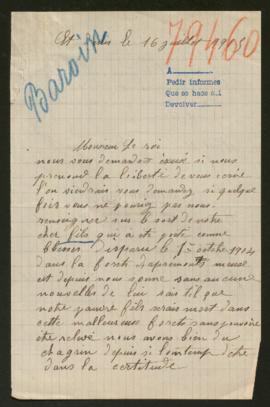 79460
Baroin
le 16 juillet 1915
A
Pedir informes
Que se hace
Devolver
Monsieur le roi
nous vous demandons si nous
prenons la liberté de vous écrire
l'on vous demander si quelque
fois vous ne pouriez pas nous
renseigner sur le sort de notre
cher fils qui a été porté comme
disparu le 1 octobre 1914
dans la forêt d'apremont
est depuis nous somme sans aucune
nouvelles de lui sais til que
notre pauvre fils serais mort dans
cette malheureuse forêt sans
être relevé nous avons bien du
chagrin depuis si lontemp
dans la certitude